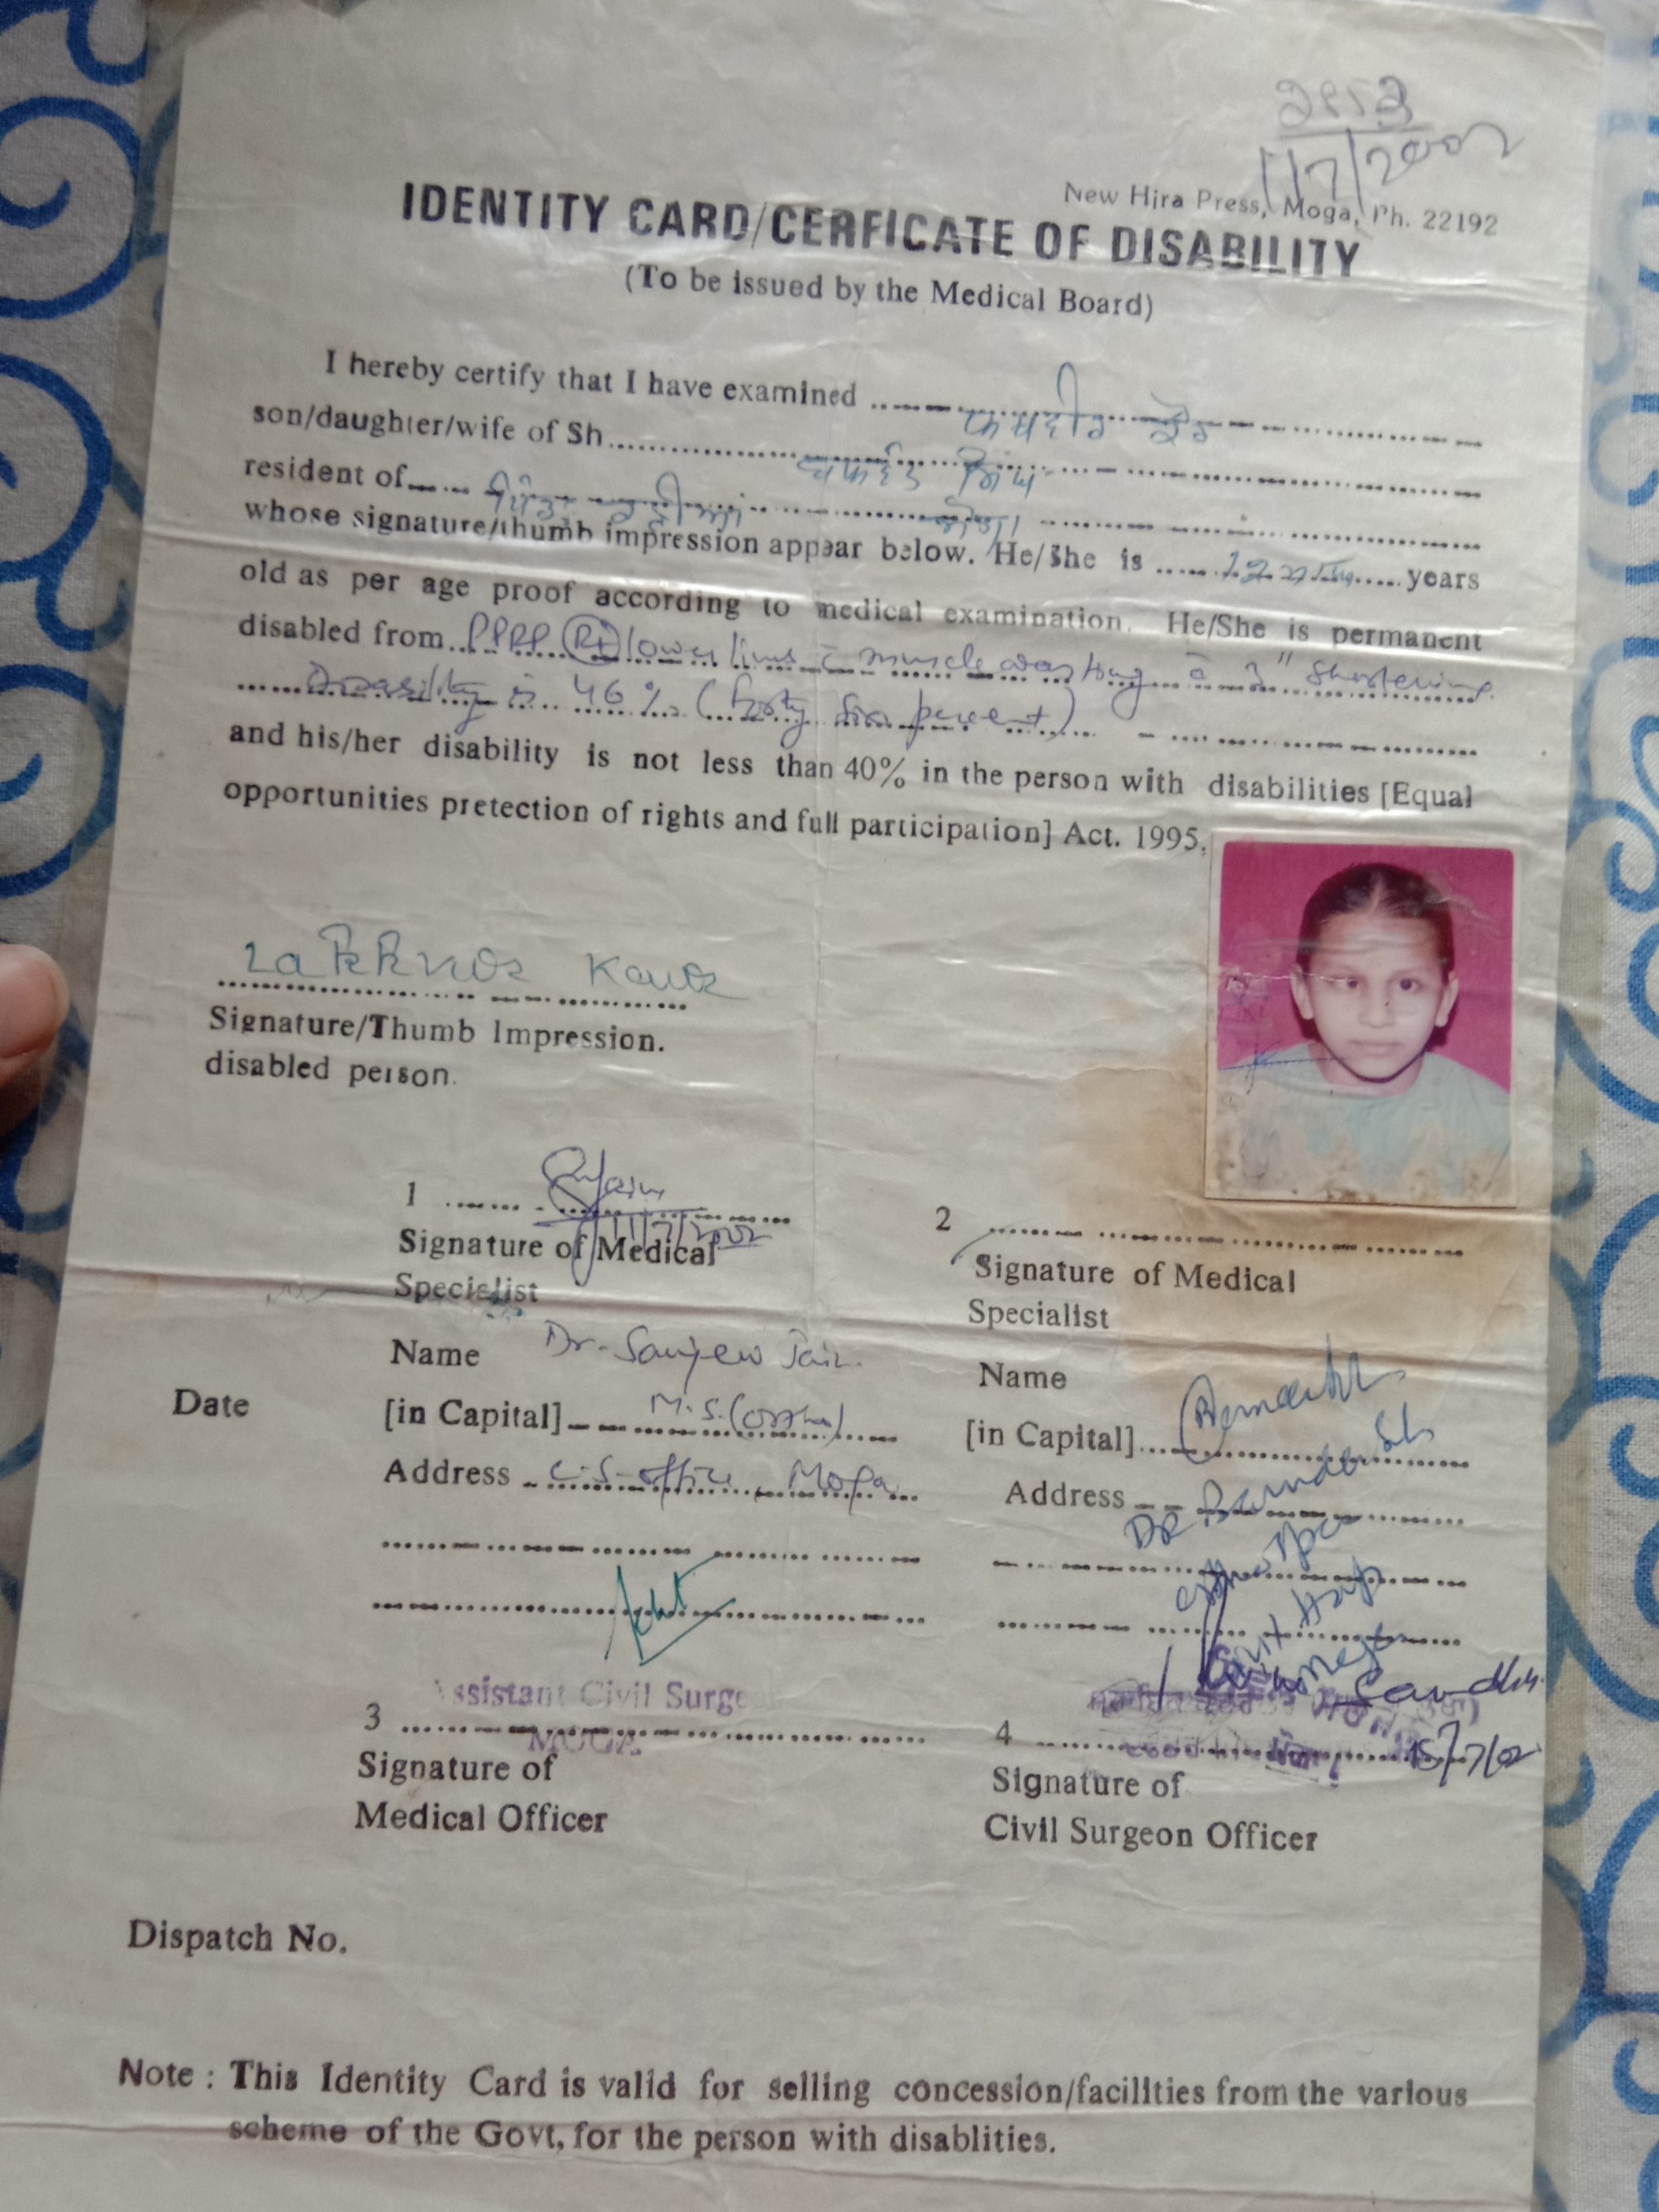 11/7/2002
New Hira Press, Moga, Ph. 22192
IDENTITY CARD/CERFICATE OF DISABILITY
(To be issued by the Medical Board)
I hereby certify that I have examined
son/daughter/wife of Sh. ਸਿੰਘ
resident of ਪਿੰਡ ਮੋਗਾ
whose signature/thumb impression appear below. He/She is 12 ਸਾਲ years
old as per age proof according to medical examination. He/She is permanent
disabled from PPRP (Rt) lower limb c̄ muscle wasting c̄ 3" shortening.
Disability is 46% (forty six percent)
and his/her disability is not less than 40% in the person with disabilities [Equal
opportunities pretection of rights and full participation] Act. 1995.
Kaur
Signature/Thumb Impression.
disabled person.
1
11/7/2002
Signature of Medical
Specialist
Name Dr. Sanjeev Jain
[in Capital] M.S. (Ortho)
Address C.S. office, Moga
2
Signature of Medical
Specialist
Name
[in Capital]
Address
Date
Assistant Civil Surge
MOGA
3
Signature of
Medical Officer
4
15/7/02
Signature of
Civil Surgeon Officer
Dispatch No.
Note : This Identity Card is valid for selling concession/facilities from the various
scheme of the Govt, for the person with disablities.